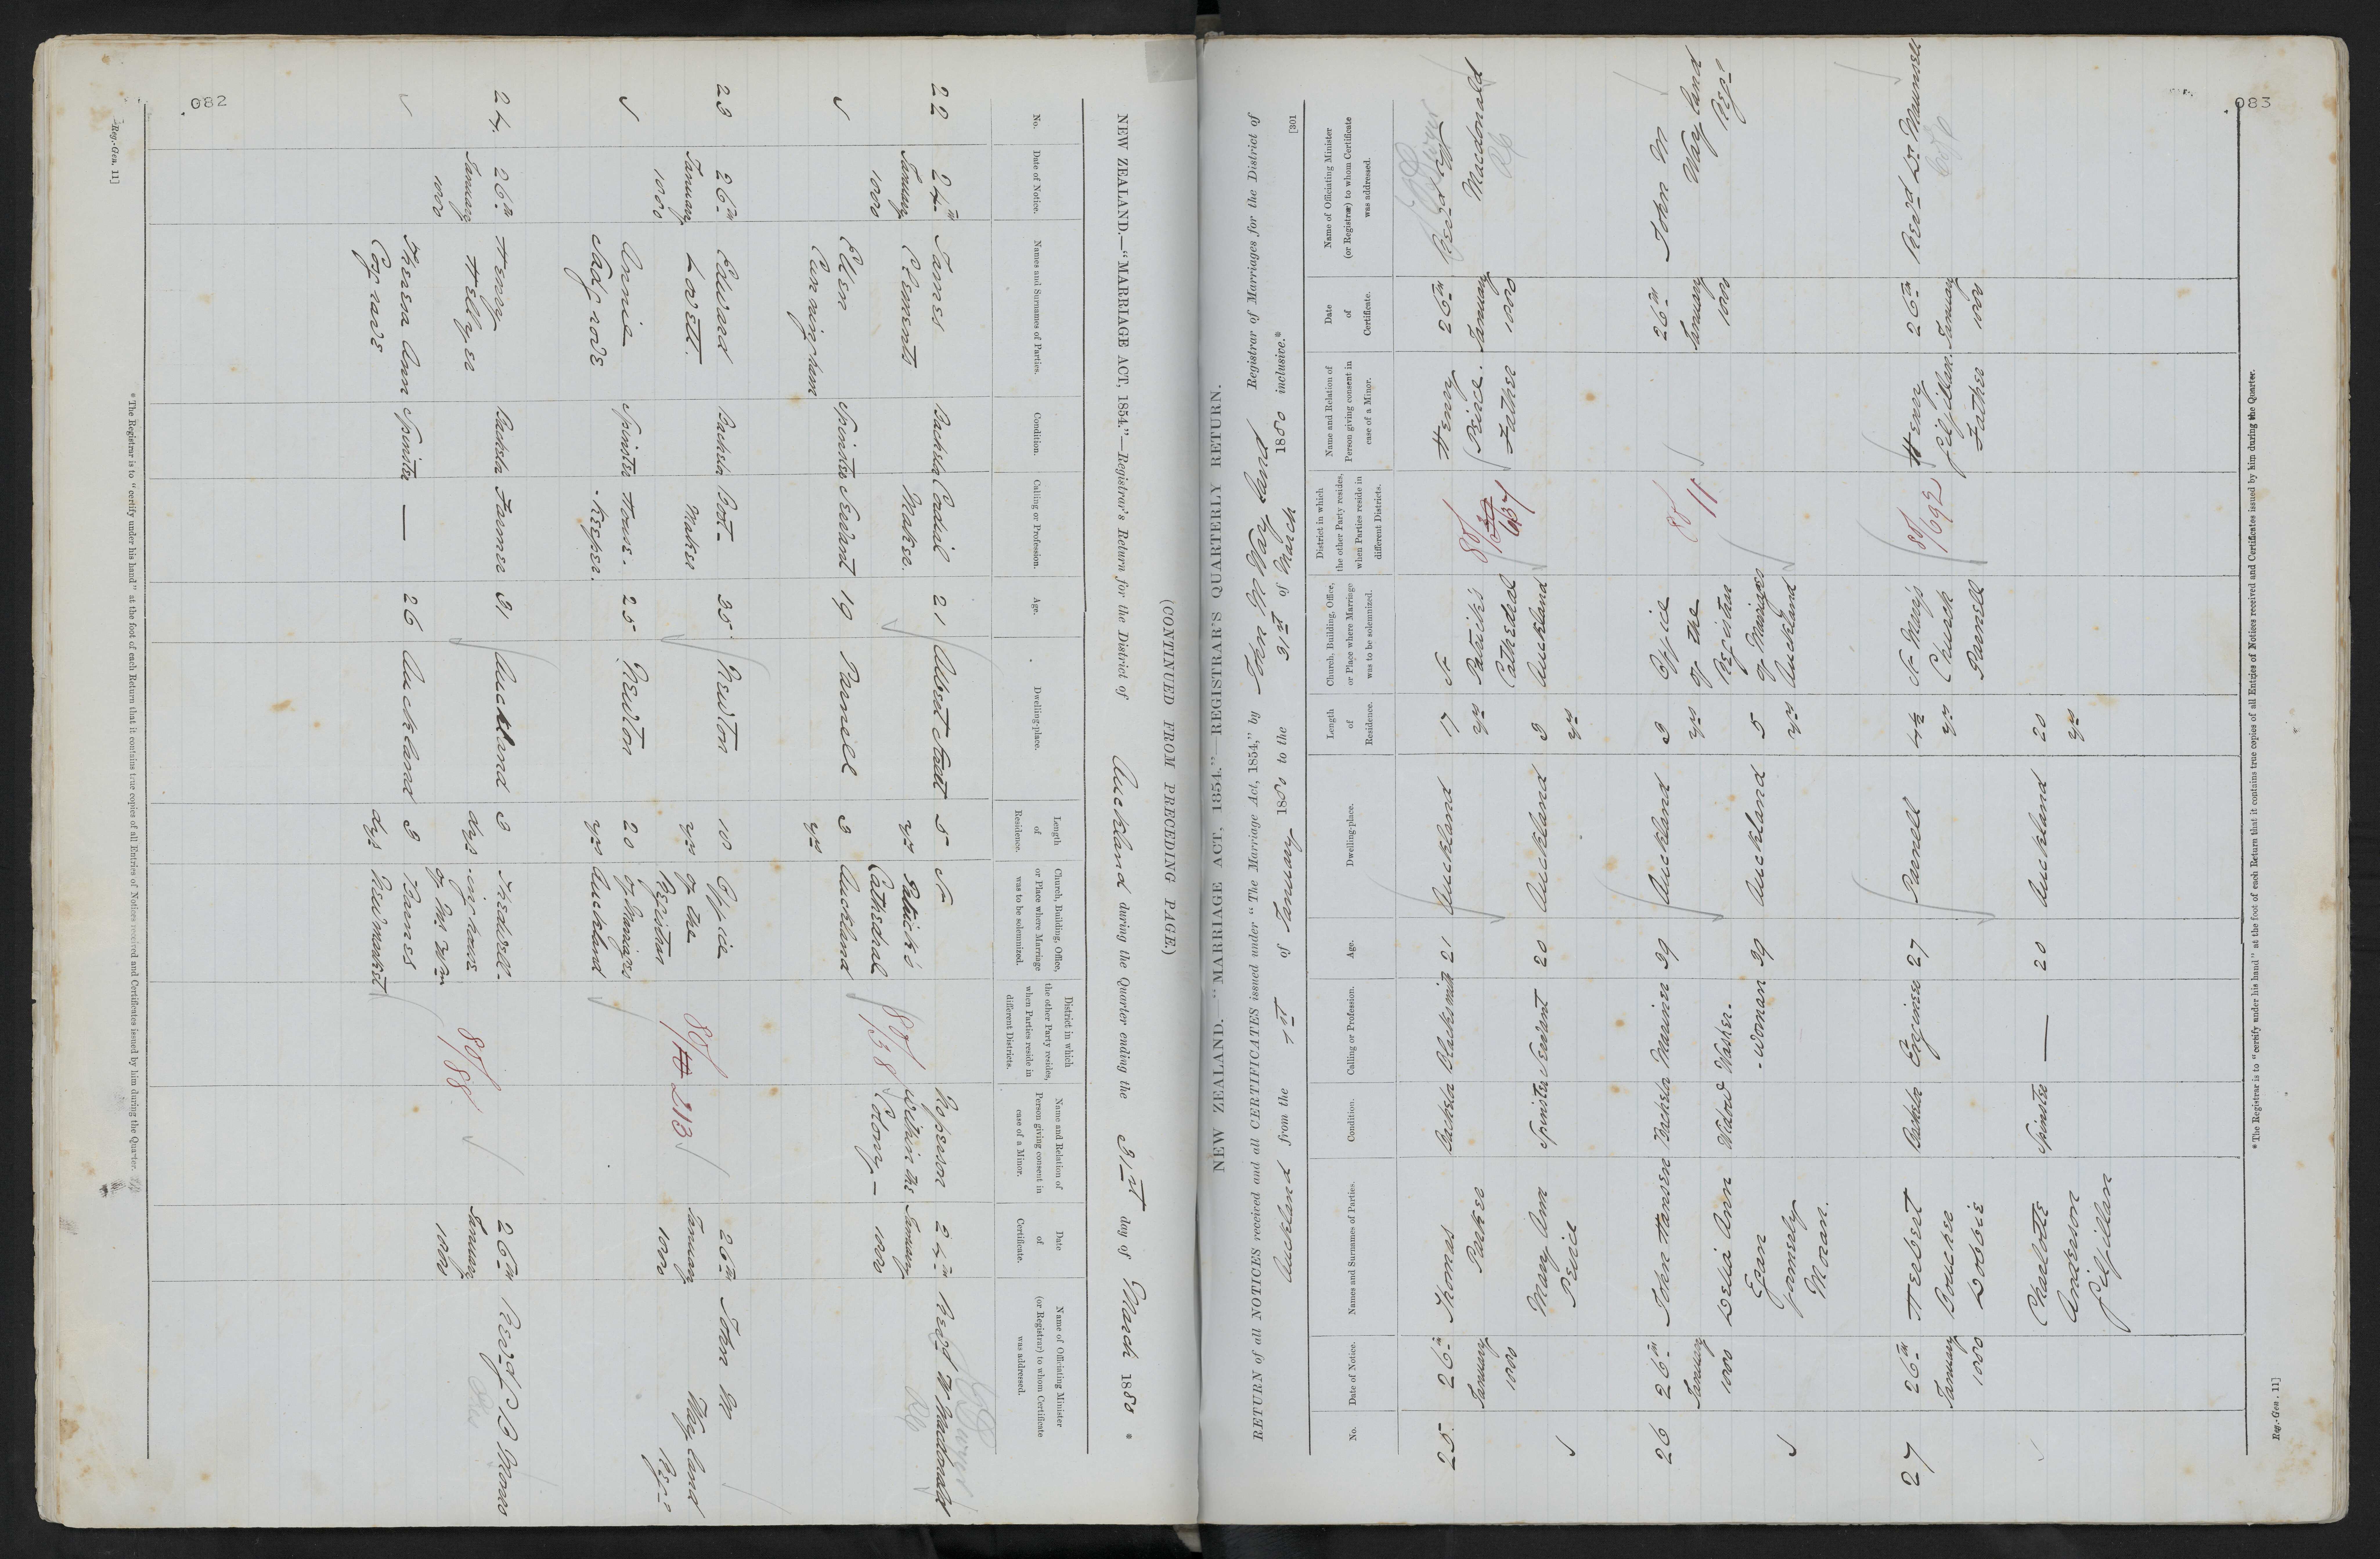 082
NEW ZEALAND.—"MARRIAGE ACT, 1854."—Registrar's Return for the District of Auckland during the Quarter ending the 31st day of March 1880 *
(CONTINUED FROM PRECEDING PAGE.)
No.
Date of Notice.
Names and Surnames of Parties.
Condition.
Calling or Profession.
Age.
Dwelling-place.
Length of Residence.
Church, Building, Office, or Place where Marriage was to be solemnized.
District in which the other Party resides, when Parties reside in different Districts.
Name and Relation of Person giving consent in case of a Minor.
Date of Certificate.
Name of Officiating Minister (or Registrar) to whom Certificate was addressed.
22 24th James Bachelor Cordial 21 Albert Street 5 St No person 24th Revd W Macdonald
January Clements Maker yrs Patrick's within the January RC
1880 Cathedral Colony — 1880
Ellen Spinster Servant 19 Parnell 3 Auckland 80/138
Cunningham yrs
23 26th Edward Bachelor Boot- 35 Newton 10 Office 26th John M
January Lovett. Maker yrs of the January Wayland
1880 Registrar 80/213 1880 Regr
Annie Spinster House- 25 Newton 20 of Marriages
Sadgrove -keeper. yrs Auckland
24. 26th Henry Bachelor Farmer 31 Auckland 3 the dwell- 26th Revd J S B Monro
January Hellyer dys ing house 80/88 January Pres
1880 of Mr Wm 1880
Theresa Ann Spinster — 26 Auckland 3 Barnes
Cosgrave dys Newmarket
* The Registrar is to "certify under his hand" at the foot of each Return that it contains true copies of all Entries of Notices received and Certificates issued by him during the Quarter.
Reg.-Gen. 11]
083
[301
NEW ZEALAND.—"MARRIAGE ACT, 1854."—REGISTRAR'S QUARTERLY RETURN.
RETURN of all NOTICES received and all CERTIFICATES issued under "The Marriage Act, 1854," by John M Wayland Registrar of Marriages for the District of
Auckland from the 1st of January 1880 to the 31st of March 1880 inclusive.*
No.
Date of Notice.
Names and Surnames of Parties.
Condition.
Calling or Profession.
Age.
Dwelling-place.
Length of Residence.
Church, Building, Office, or Place where Marriage was to be solemnized.
District in which the other Party resides, when Parties reside in different Districts.
Name and Relation of Person giving consent in case of a Minor.
Date of Certificate.
Name of Officiating Minister (or Registrar) to whom Certificate was addressed.
25. 26th Thomas Bachelor Blacksmith 21 Auckland 17 St Henry 26th Revd W
January Parker yrs Patrick's 80/637 Peirce. January Macdonald
1880 Cathedral Father 1880 RC
Mary Ann Spinster Servant 20 Auckland 3 Auckland
Peirce yrs
26 26th John Hansen Bachelor Mariner 39 Auckland 3 Office 26th John M
January yrs of the 80/11 January Wayland
1880 Registrar 1880 Regr
Delia Ann Widow Washer- 39 Auckland 5 of Marriages
Egan -woman yrs Auckland
formerly
Moran.
27 26th Herbert Bachelor Engineer 27 Parnell 4½ St Mary's Henry 26th Revd Dr Maunsell
January Boucher yrs Church 80/692 Gilfillan. January C of E
1880 Dobbie Parnell Father 1880
Charlotte Spinster — 20 Auckland 20
Anderson yrs
Gilfillan
* The Registrar is to "certify under his hand" at the foot of each Return that it contains true copies of all Entries of Notices received and Certificates issued by him during the Quarter.
Reg.-Gen. 11]